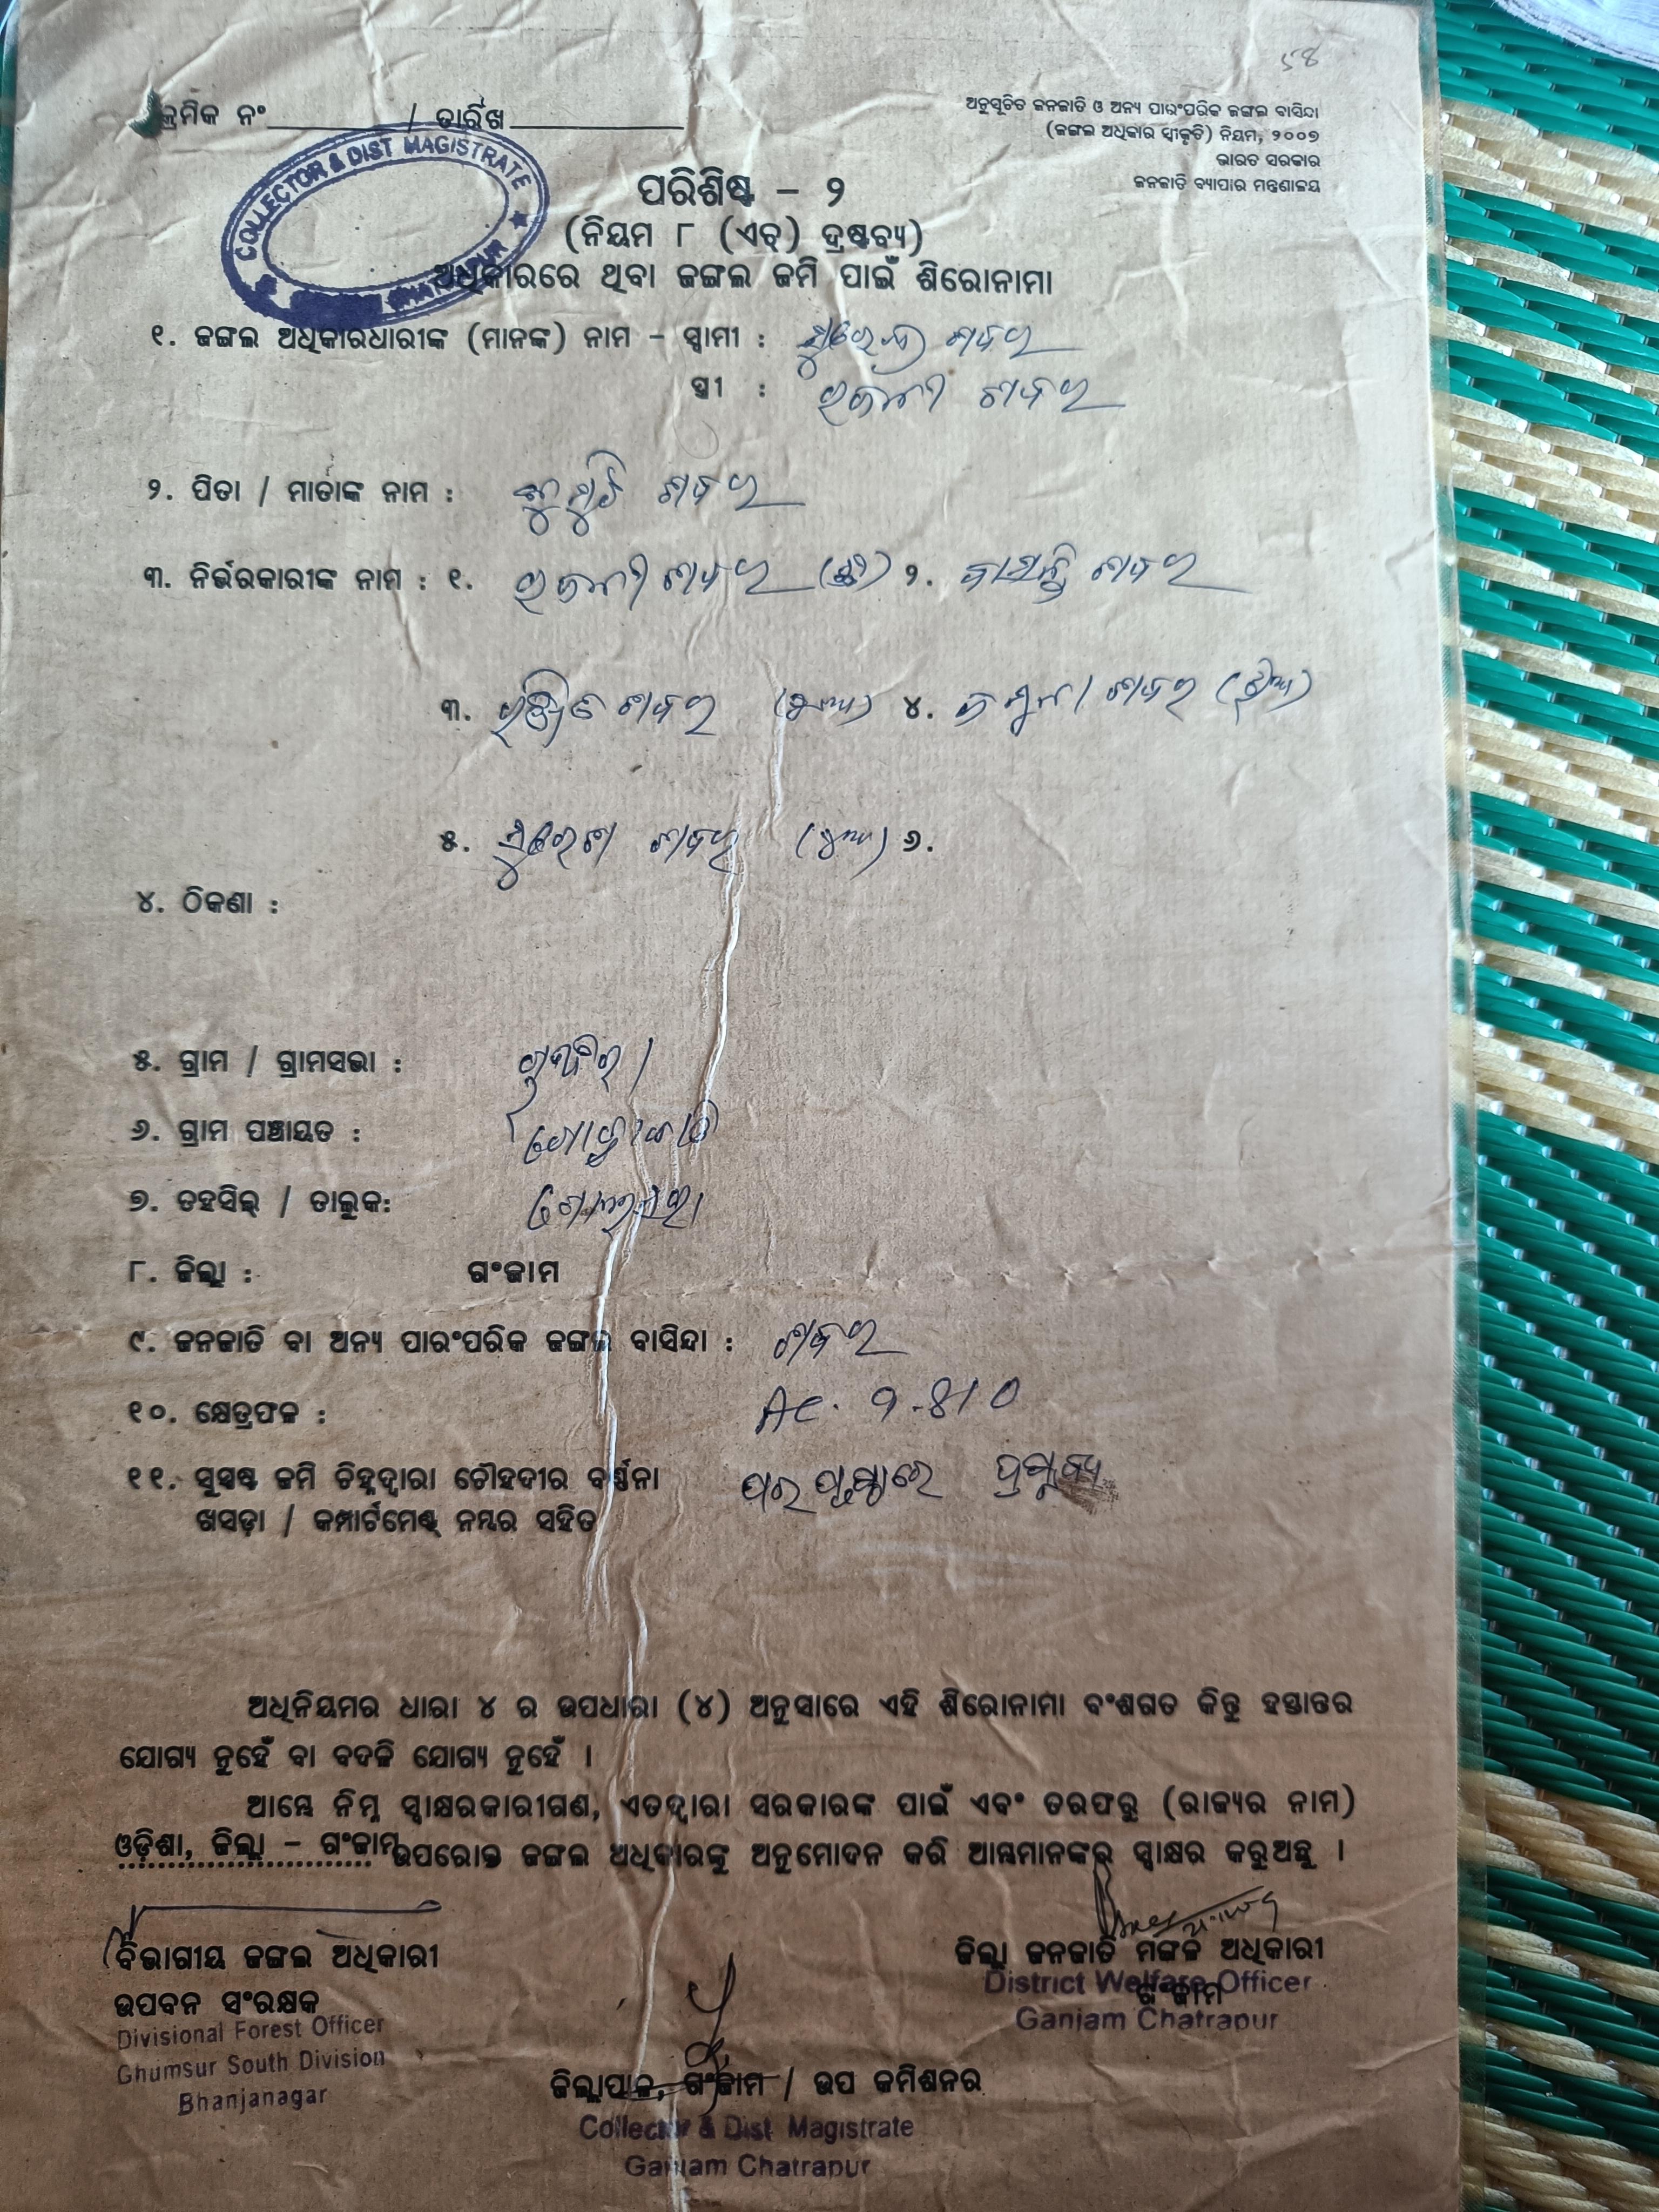 ୫୪
କ୍ରମିକ ନଂ / ତାରିଖ
ଅନୁସୂଚିତ ଜନଜାତି ଓ ଅନ୍ୟ ପାରଂପରିକ ଜଙ୍ଗଲ ବାସିନ୍ଦା
(ଜଙ୍ଗଲ ଅଧିକାର ସ୍ୱୀକୃତି) ନିୟମ, ୨୦୦୭
ଭାରତ ସରକାର
ଜନଜାତି ବ୍ୟାପାର ମନ୍ତ୍ରଣାଳୟ
COLLECTOR & DIST MAGISTRATE
ପରିଶିଷ୍ଟ – ୨
(ନିୟମ ୮ (ଏଚ୍) ଦ୍ରଷ୍ଟବ୍ୟ)
ଅଧିକାରରେ ଥିବା ଜଙ୍ଗଲ ଜମି ପାଇଁ ଶିରୋନାମା
୧. ଜଙ୍ଗଲ ଅଧିକାରଧାରୀଙ୍କ (ମାନଙ୍କ) ନାମ – ସ୍ୱାମୀ : ସୁରେନ୍ଦ୍ର ଶବର
ସ୍ତ୍ରୀ : ଶବର
୨. ପିତା / ମାତାଙ୍କ ନାମ : ଶବର
୩. ନିର୍ଭରକାରୀଙ୍କ ନାମ : ୧. ଶବର (ସ୍ତ୍ରୀ) ୨. ବାସନ୍ତି ଶବର
୩. ଶବର (ପୁଅ) ୪. ଶବର (ଝିଅ)
୫. ସୁରେଶ ଶବର (ପୁଅ) ୬.
୪. ଠିକଣା :
୫. ଗ୍ରାମ / ଗ୍ରାମସଭା :
୬. ଗ୍ରାମ ପଞ୍ଚାୟତ :
୭. ତହସିଲ୍ / ତାଲୁକ:
୮. ଜିଲ୍ଲା : ଗଂଜାମ
୯. ଜନଜାତି ବା ଅନ୍ୟ ପାରଂପରିକ ଜଙ୍ଗଲ ବାସିନ୍ଦା : ଶବର
୧୦. କ୍ଷେତ୍ରଫଳ : Ac.
୧୧. ସୁସ୍ପଷ୍ଟ ଜମି ଚିହ୍ନଦ୍ୱାରା ଚୌହଦୀର ବର୍ଣ୍ଣନା ପର ପୃଷ୍ଠାରେ ଦ୍ରଷ୍ଟବ୍ୟ
ଖସଡ଼ା / କମ୍ପାର୍ଟମେଣ୍ଟ୍ ନମ୍ବର ସହିତ
ଅଧିନିୟମର ଧାରା ୪ ର ଉପଧାରା (୪) ଅନୁସାରେ ଏହି ଶିରୋନାମା ବଂଶଗତ କିନ୍ତୁ ହସ୍ତାନ୍ତର
ଯୋଗ୍ୟ ନୁହେଁ ବା ବଦଳି ଯୋଗ୍ୟ ନୁହେଁ ।
ଆମ୍ଭେ ନିମ୍ନ ସ୍ୱାକ୍ଷରକାରୀଗଣ, ଏତଦ୍ୱାରା ସରକାରଙ୍କ ପାଇଁ ଏବଂ ତରଫରୁ (ରାଜ୍ୟର ନାମ)
ଓଡ଼ିଶା, ଜିଲ୍ଲା – ଗଂଜାମ ଉପରୋକ୍ତ ଜଙ୍ଗଲ ଅଧିକାରକୁ ଅନୁମୋଦନ କରି ଆମ୍ଭମାନଙ୍କର ସ୍ୱାକ୍ଷର କରୁଅଛୁ ।
ବିଭାଗୀୟ ଜଙ୍ଗଲ ଅଧିକାରୀ
ଉପବନ ସଂରକ୍ଷକ
Divisional Forest Officer
Ghumsur South Division
Bhanjanagar
ଜିଲ୍ଲା ଜନଜାତି ମଙ୍ଗଳ ଅଧିକାରୀ
ଗଂଜାମ
District Welfare Officer
Ganjam Chatrapur
ଜିଲ୍ଲାପାଳ, ଗଂଜାମ / ଉପ କମିଶନର
Collector & Dist. Magistrate
Ganjam Chatrapur